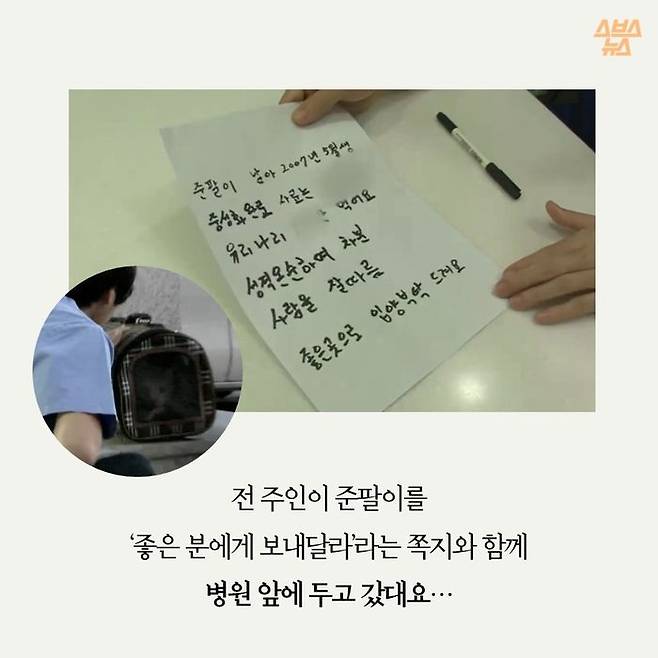 스브스
뉴스
준팔이 남아 2007년 5월생
중성화완료 사료는
유리나리 먹어요
성격온순하며 차분
사람을 잘따름
좋은곳으로 입양부탁 드려요
전 주인이 준팔이를
‘좋은 분에게 보내달라’라는 쪽지와 함께
병원 앞에 두고 갔대요…